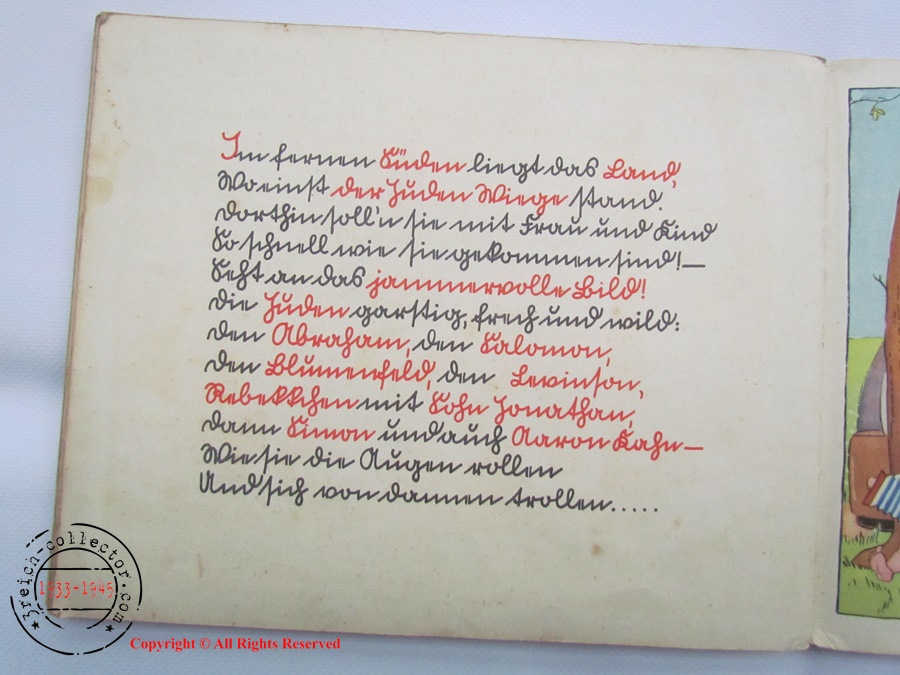 Im fernen Süden liegt das Land,
Wo einst der Juden Wiege stand.
Dorthin soll'n sie mit Frau und Kind
So schnell wie sie gekommen sind! —
Seht an das jammervolle Bild!
Die Juden garstig, frech und wild:
Den Abraham, den Salomon,
Den Blumenfeld, den Levinson,
Rebekkchen mit Sohn Jonathan,
Dann Simon und auch Aaron Kahn —
Wie sie die Augen rollen
Und sich von dannen trollen.....
3reich-collector.com
1933-1945
Copyright © All Rights Reserved